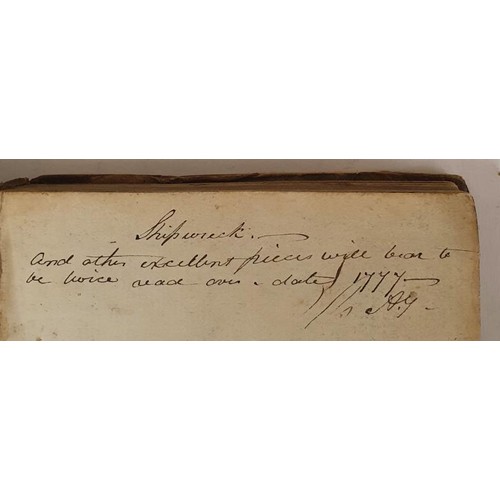 Shipwreck. —
And other excellent pieces will bear to
be twice read over - date 1777 —
A.G -